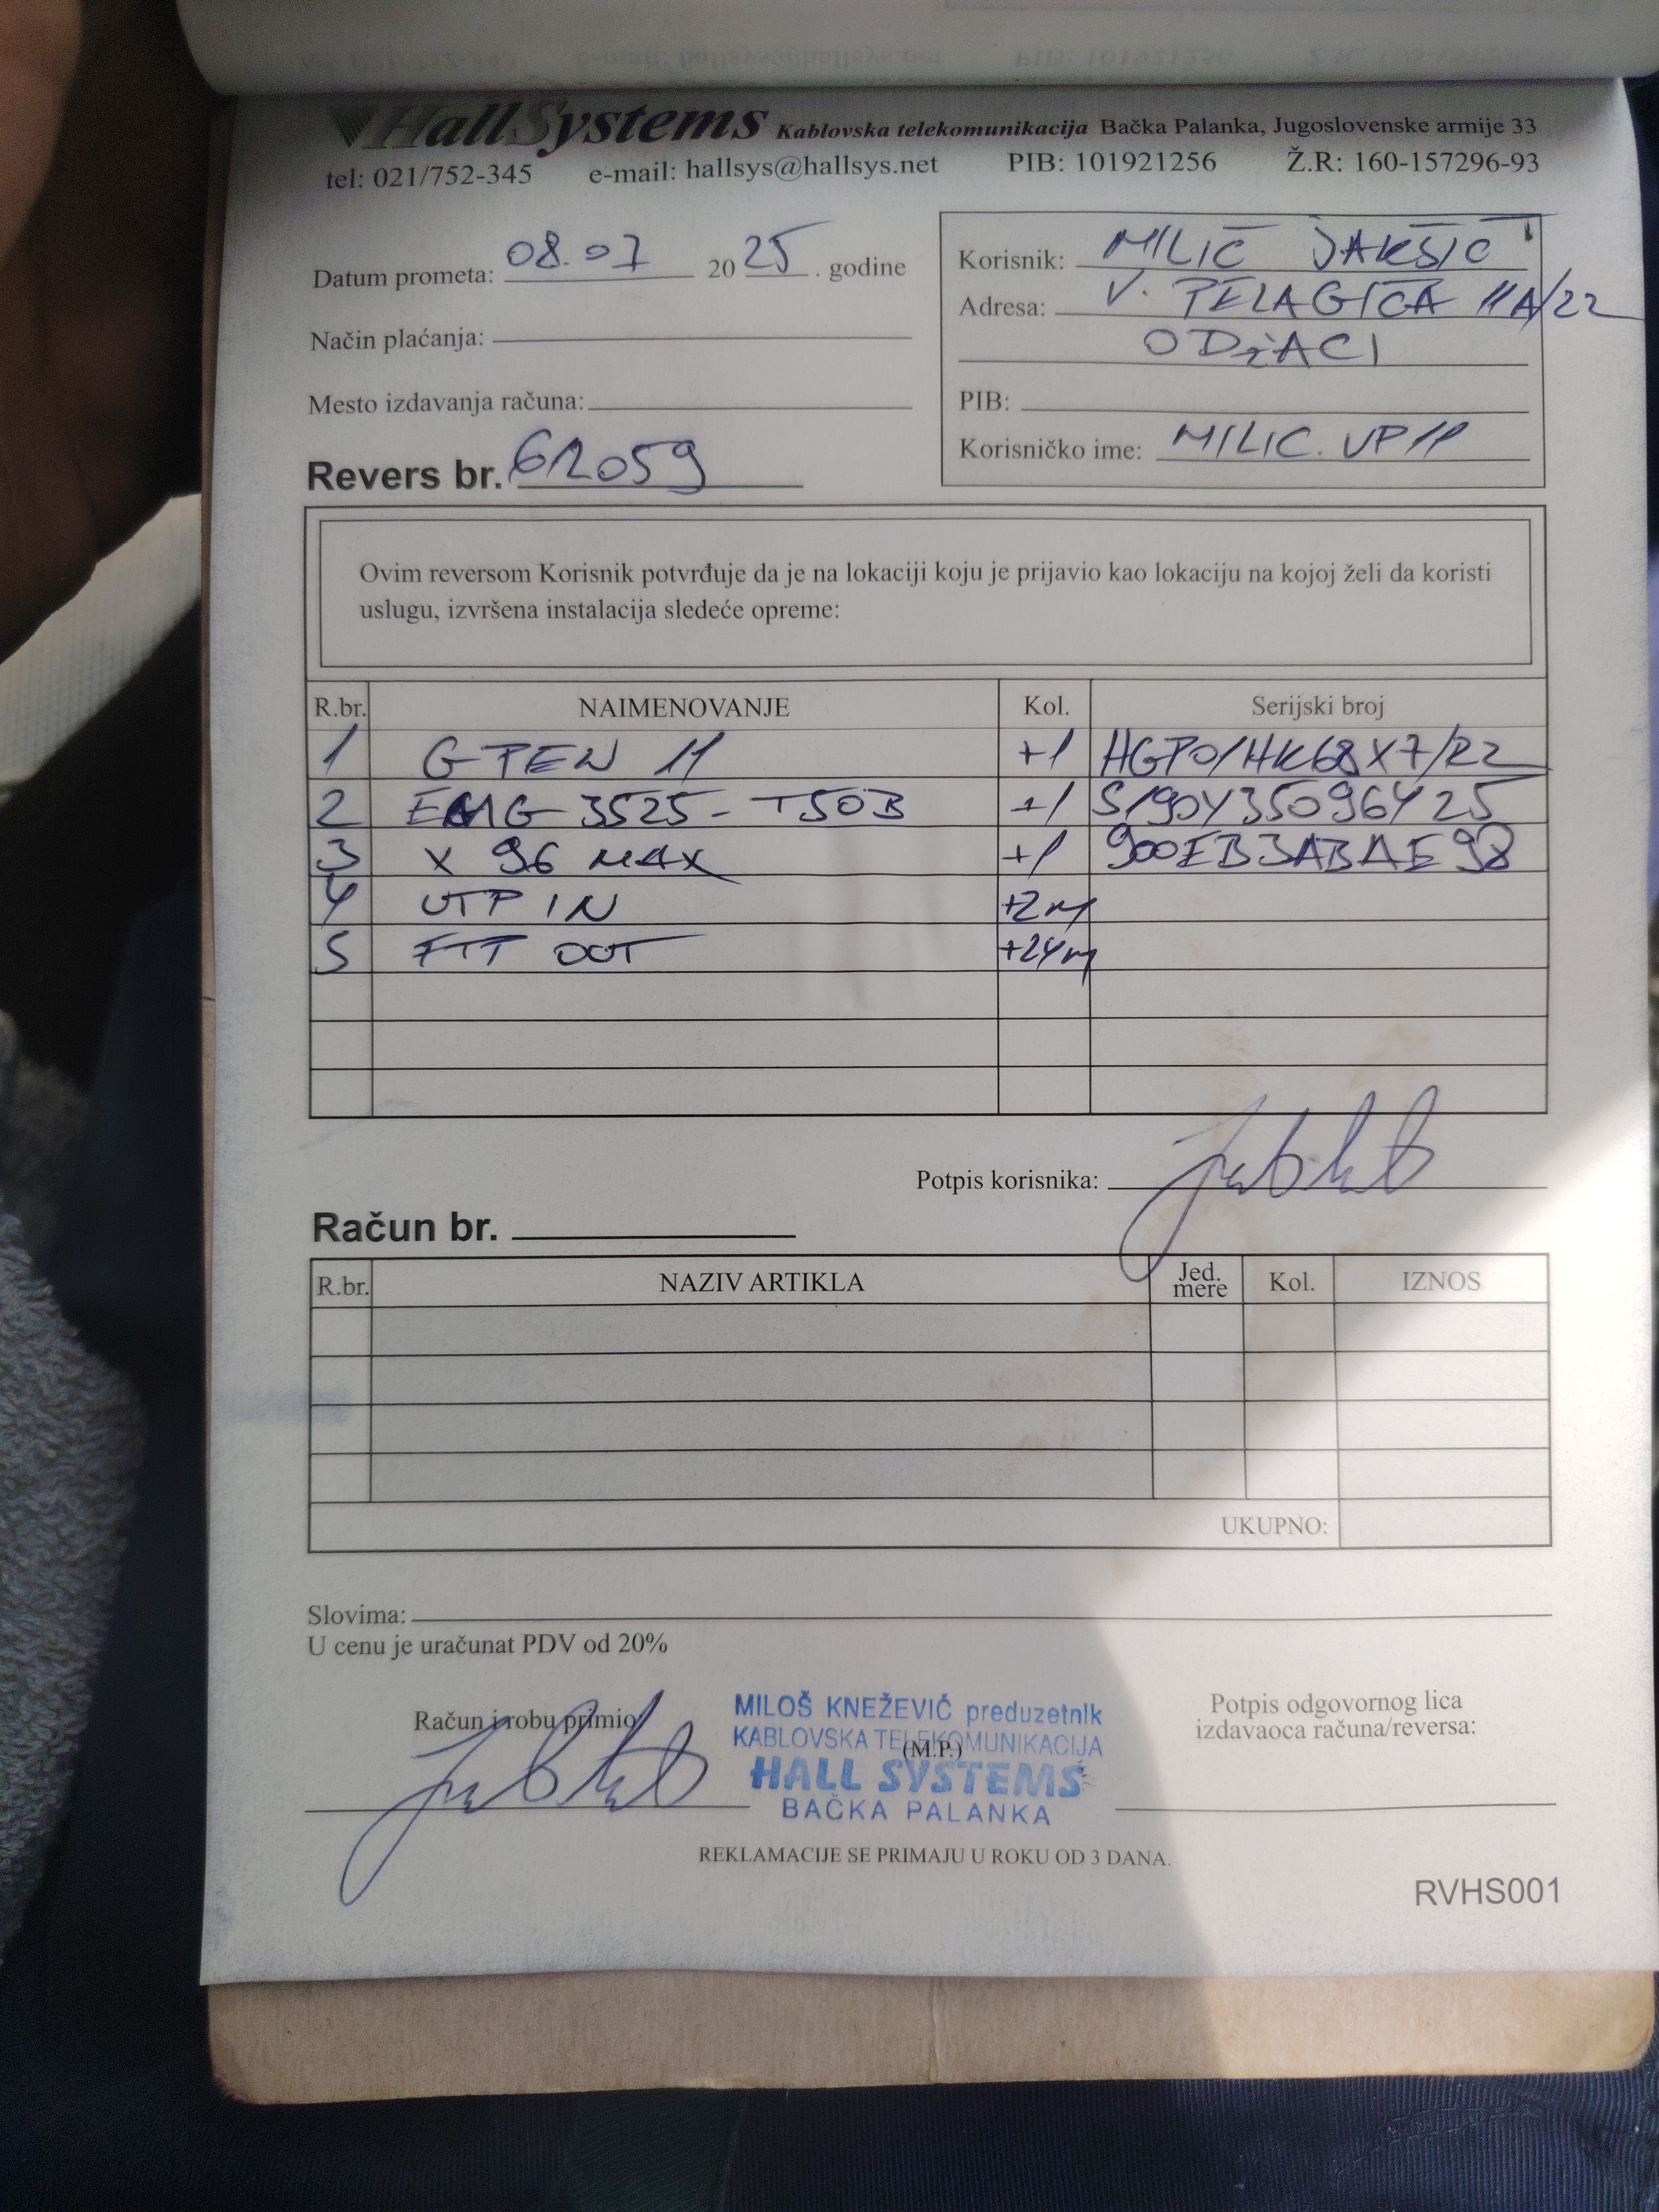 HallSystems Kablovska telekomunikacija Bačka Palanka, Jugoslovenske armije 33
tel: 021/752-345 e-mail: hallsys@hallsys.net PIB: 101921256 Ž.R: 160-157296-93
Datum prometa: 08.07 2025. godine
Način plaćanja:
Mesto izdavanja računa:
Revers br. 61059
Korisnik: MILIĆ JAKŠIĆ
Adresa: V. PELAGIĆA 11A/22
ODžACI
PIB:
Korisničko ime: MILIC.VP11
Ovim reversom Korisnik potvrđuje da je na lokaciji koju je prijavio kao lokaciju na kojoj želi da koristi
uslugu, izvršena instalacija sledeće opreme:
R.br. NAIMENOVANJE Kol. Serijski broj
1 G TEN 11 +1
2 EMG 3525-T50B +1 S190Y35096425
3 X 96 MAX +1 900EB3ABAE98
4 UTP IN +2m
5 FTT OUT +24m
Potpis korisnika:
Račun br.
R.br. NAZIV ARTIKLA Jed. mere Kol. IZNOS
UKUPNO:
Slovima:
U cenu je uračunat PDV od 20%
Račun i robu primio:
MILOŠ KNEŽEVIĆ preduzetnik
KABLOVSKA TELEKOMUNIKACIJA
(M.P.)
HALL SYSTEMS
BAČKA PALANKA
Potpis odgovornog lica
izdavaoca računa/reversa:
REKLAMACIJE SE PRIMAJU U ROKU OD 3 DANA.
RVHS001